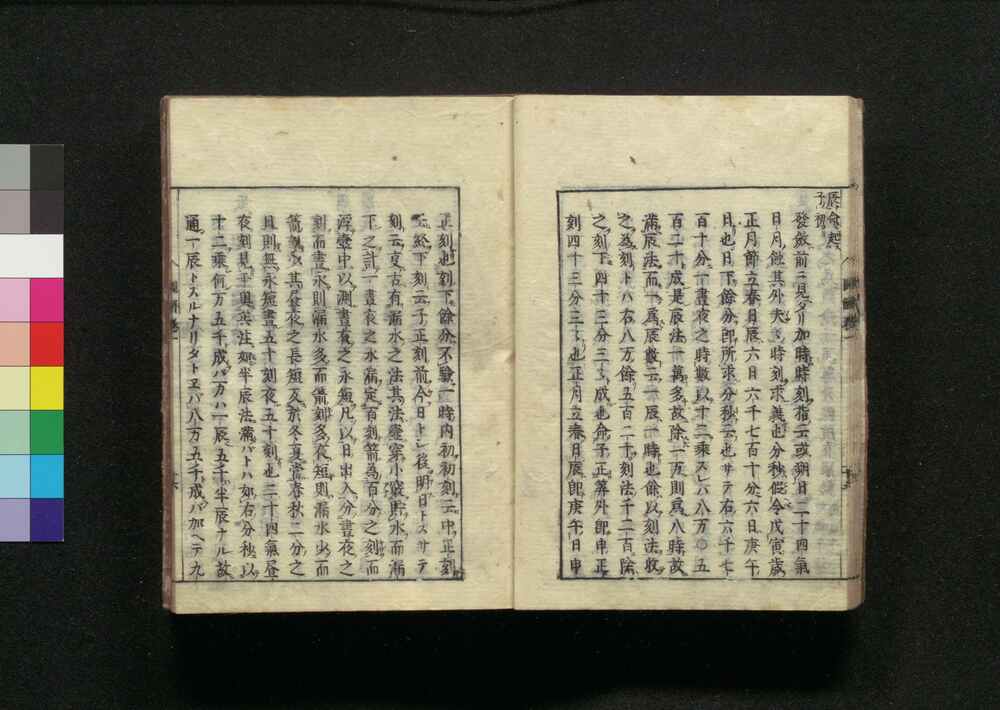 辰命起
子初
發斂前ニ見タリ加時時刻指云或朔日二十四氣
日月蝕其外夫々時刻求義也分秒假令戊寅歳
正月節立春日辰六日六千七百十分六日庚午
日也日下餘分即所求分秒云也サテ右六千七
百十分一晝夜之時數以十二乘スレバ八万〇五
百二十成是辰法一萬多故除一万則爲八時故
滿辰法而一爲辰數云一辰一時也餘以刻法收
之爲刻トハ右八万餘五百二十刻法千二百除
之刻下四十三分三三成也命子正筭外即申正
刻四十三分三三也正月立春日辰即庚午日申
正刻也刻下餘分不驗一時内初初刻云中正刻
云終下刻云子正刻前今日トシ後明日トスサテ
刻云夏古有漏水之法其法壷穿小竅貯水而漏
下之計一晝夜之水漏定百刻箭為百分之刻而
浮壷中以測晝夜之永短凡以日出入分晝夜之
刻而晝永則漏水多而箭刻多夜短則漏水少而
箭刻少其晝夜之長短及於冬夏當春秋二分之
日則無永短晝五十刻夜五十刻也二十四氣晝
夜刻見于奥共注如半辰法滿バトハ如右分秒以
十二乘何万五千成バ一万ハ一辰五千半辰ナル故
通一辰トスルナリタトヱバ八万五千成バ加ヘテ九